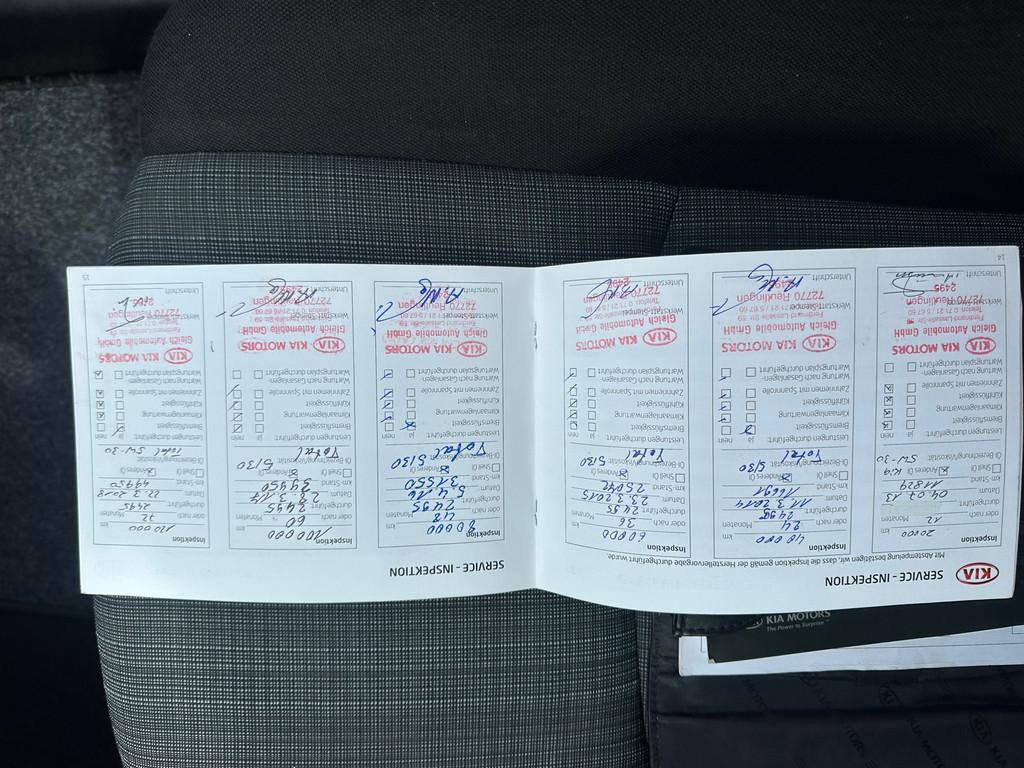 KIA SERVICE - INSPEKTION
Mit Abstempelung bestätigen wir, dass die Inspektion gemäß der Herstellervorgabe durchgeführt wurde.
Inspektion
20000 km
oder nach 12 Monaten
durchgeführt:
Datum 04.07.13
km-Stand 11829
Öl-Bezeichnung/Viskosität:
Shell Anderes Öl
5W-30
Leistungen durchgeführt: ja nein
Bremsflüssigkeit
Klimaanlagenwartung
Kühlflüssigkeit
Zahnriemen mit Spannrolle
Wartung nach Gasanlagen-
Wartungsplan durchgeführt
KIA MOTORS
Gleich Automobile GmbH
Ferdinand-Lassalle-Str. 59
Telefon 0 71 21 / 5 67 60
72770 Reutlingen
2495
Unterschrift
14
Inspektion
40000 km
oder nach 24 Monaten
durchgeführt: 2495
Datum 11.3.2014
km-Stand 16691
Öl-Bezeichnung/Viskosität:
Shell Anderes Öl
Total 5/30
Leistungen durchgeführt: ja nein
Bremsflüssigkeit
Klimaanlagenwartung
Kühlflüssigkeit
Zahnriemen mit Spannrolle
Wartung nach Gasanlagen-
Wartungsplan durchgeführt
Werkstatt-Stempel
KIA MOTORS
Gleich Automobile GmbH
72770 Reutlingen
2495
Unterschrift
Inspektion
60000 km
oder nach 36 Monaten
durchgeführt: 2495
Datum 23.3.2015
km-Stand
Öl-Bezeichnung/Viskosität:
Shell Anderes Öl
Total 5/30
Leistungen durchgeführt: ja nein
Bremsflüssigkeit
Klimaanlagenwartung
Kühlflüssigkeit
Zahnriemen mit Spannrolle
Wartung nach Gasanlagen-
Wartungsplan durchgeführt
Werkstatt-Stempel
KIA MOTORS
Gleich Automobile GmbH
72770 Reutlingen
2495
Unterschrift
SERVICE - INSPEKTION
Inspektion
80000 km
oder nach 48 Monaten
durchgeführt: 2495
Datum 5.4.16
km-Stand 31550
Öl-Bezeichnung/Viskosität:
Shell Anderes Öl
Total 5/30
Leistungen durchgeführt: ja nein
Bremsflüssigkeit
Klimaanlagenwartung
Kühlflüssigkeit
Zahnriemen mit Spannrolle
Wartung nach Gasanlagen-
Wartungsplan durchgeführt
KIA MOTORS
Gleich Automobile GmbH
72770 Reutlingen
Unterschrift
Inspektion
100000 km
oder nach 60 Monaten
durchgeführt: 2495
Datum 23.3.17
km-Stand 39450
Öl-Bezeichnung/Viskosität:
Shell Anderes Öl
Total 5/30
Leistungen durchgeführt: ja nein
Bremsflüssigkeit
Klimaanlagenwartung
Kühlflüssigkeit
Zahnriemen mit Spannrolle
Wartung nach Gasanlagen-
Wartungsplan durchgeführt
KIA MOTORS
Gleich Automobile GmbH
72770 Reutlingen
Unterschrift
Inspektion
120000 km
oder nach 72 Monaten
durchgeführt: 2495
Datum 22.3.2018
km-Stand 49950
Öl-Bezeichnung/Viskosität:
Shell Anderes Öl
Total 5W-30
Leistungen durchgeführt: ja nein
Bremsflüssigkeit
Klimaanlagenwartung
Kühlflüssigkeit
Zahnriemen mit Spannrolle
Wartung nach Gasanlagen-
Wartungsplan durchgeführt
KIA MOTORS
Gleich Automobile GmbH
72770 Reutlingen
Unterschrift
15
KIA MOTORS
The Power to Surprise™